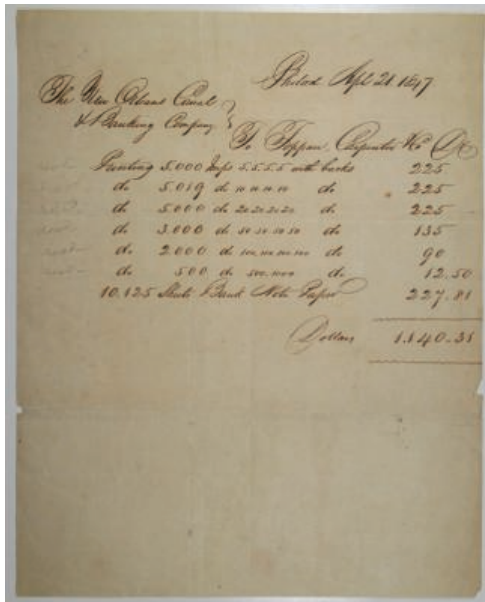 Philad Apl 21 1847
The New Orleans Canal
& Banking Company
To Toppan, Carpenter & Co Dr
Printing 5.000 Imps 5.5.5.5 with backs 225
do 5.019 do 10.10.10.10 do 225
do 5.000 do 20.20.20.20 do 225
do 3.000 do 50.50.50.50 do 135
do 2.000 do 100.100.100.100 do 90
do 500 do 500.1000 do 12.50
10.125 Sheets Bank Note Paper 227.81
Dollars 1.140.31